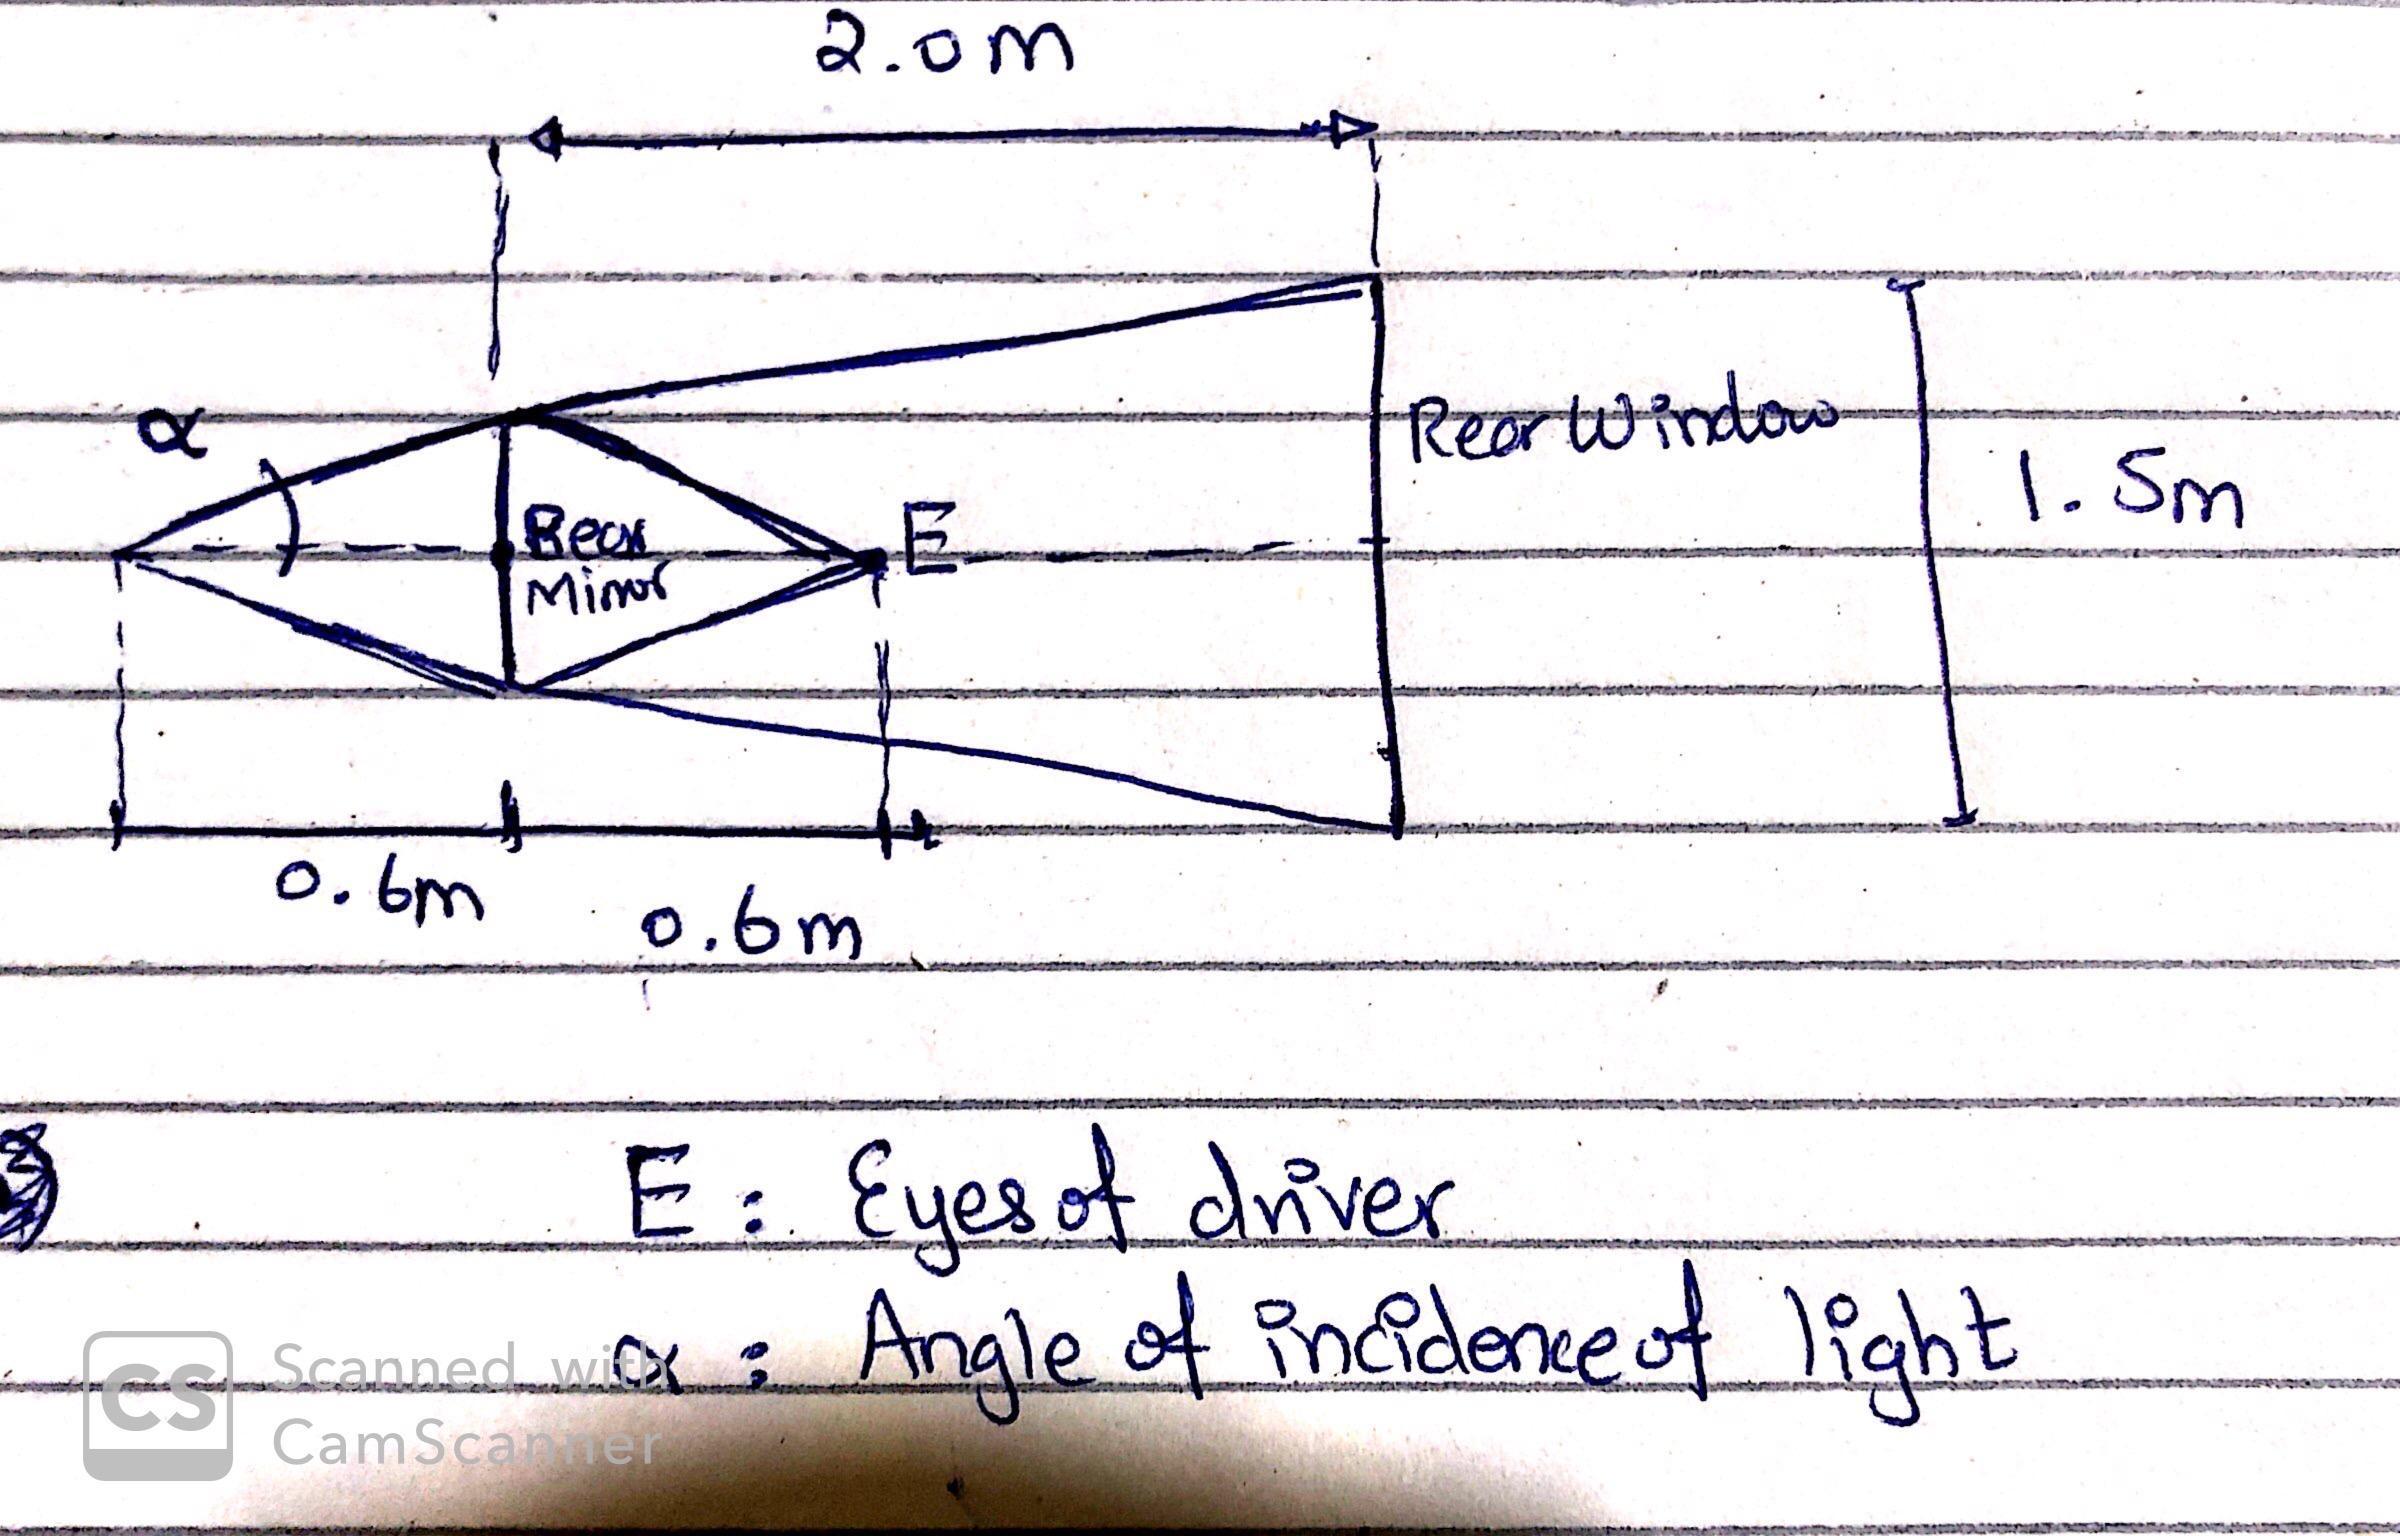 2.0m
α
Rear Window
1.5m
Rear
Mirror
E
0.6m
0.6m
E : Eyes of driver
α : Angle of incidence of light
CS
Scanned with
CamScanner